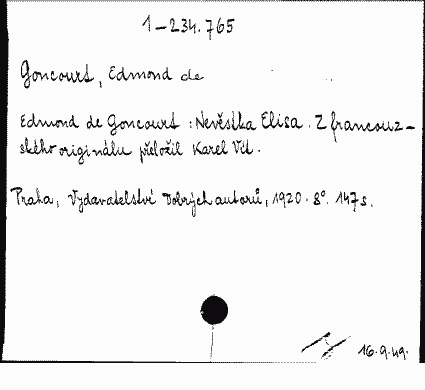 1-234.765
Goncourt, Edmond de
Edmond de Goncourt : Nevěstka Elisa. Z francouz-
ského originálu přeložil Karel Vít.
Praha, Vydavatelství Dobrých autorů, 1920. 8°. 147 s.
16.9.49.